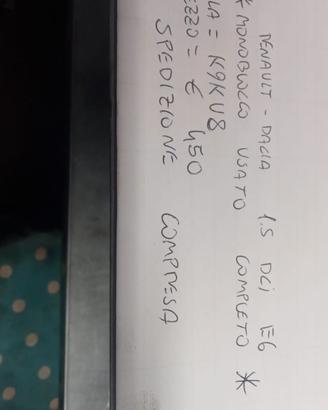 RENAULT - DACIA 1.5 DCI E6
* MONOBLOCCO USATO COMPLETO *
LA = K9KU8
EZZO = € 450
SPEDIZIONE COMPRESA